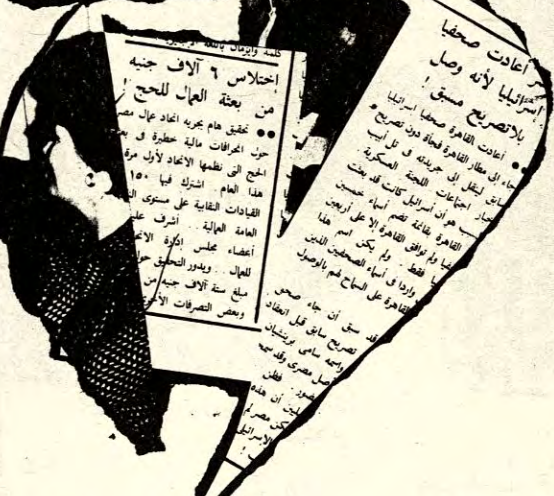 كلمة وايزمان باللغة
اختلاس ٦ آلاف جنيه
من بعثة العمال للحج !
●● تحقيق هام يجريه اتحاد عمال مصر
حول انحرافات مالية خطيرة فى
الحج التى نظمها الاتحاد لأول مرة
هذا العام . اشترك فيها ١٥٠
القيادات النقابية على مستوى
العامة العمالية . . أشرف
أعضاء مجلس إدارة
للعمال . . ويدور التحقيق
مبلغ ستة آلاف جنيه من
وبعض التصرفات
أعادت صحفيا
إسرائيليا لأنه وصل
بلا تصريح مسبق !
●● أعادت القاهرة صحفيا اسرائيليا
جاء إلى مطار القاهرة فجأة دون تصريح
سابق لينقل إلى جريدته فى تل أبيب
اجتماعات اللجنة العسكرية .
هو أن اسرائيل كانت قد بعثت
القاهرة بقائمة تضم أسماء خمسين
ولم توافق القاهرة إلا على أربعين
فقط . ولم يكن اسم هذا
واردا فى أسماء الصحفيين الذين
القاهرة على السماح لهم بالوصول
قد سبق أن جاء صحفى
تصريح سابق قبل انعقاد
واسمه سامى
أصل مصرى وقد
فظن
أن هذه
مصر لم